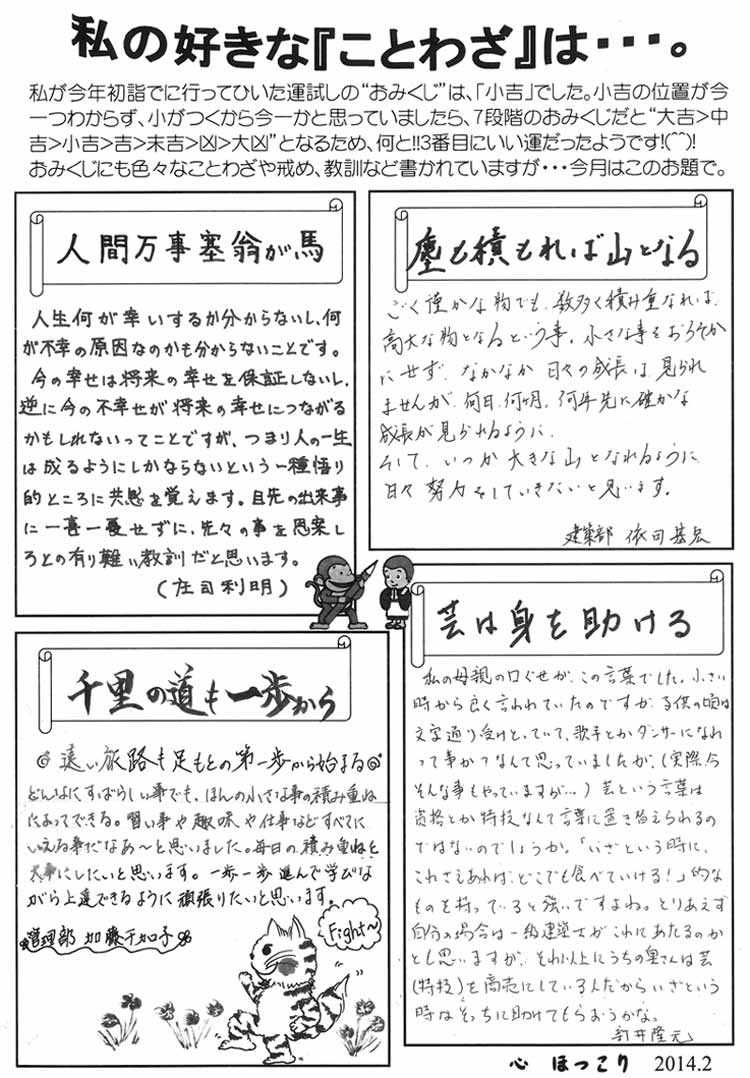 私の好きな『ことわざ』は・・・。
私が今年初詣でに行ってひいた運試しの“おみくじ”は、「小吉」でした。小吉の位置が今
一つわからず、小がつくから今一かと思っていましたら、7段階のおみくじだと“大吉>中
吉>小吉>吉>末吉>凶>大凶”となるため、何と!!3番目にいい運だったようです!(^^)!
おみくじにも色々なことわざや戒め、教訓など書かれていますが・・・今月はこのお題で。
人間万事塞翁が馬
人生何が幸いするか分からないし、何
が不幸の原因なのかも分からないことです。
今の幸せは将来の幸せを保証しないし、
逆に今の不幸せが将来の幸せにつながる
かもしれないってことですが、つまり人の一生
は成るようにしかならないという一種悟り
的ところに共感を覚えます。目先の出来事
に一喜一憂せずに、先々の事を思案し
ろとの有り難い教訓だと思います。
(庄司利明)
塵も積もれば山となる
ごく僅かな物でも、数多く積み重なれば、
高大な物となるという事。小さな事をおろそか
にせず、なかなか日々の成長は見られ
ませんが、何日、何ヶ月、何年先に確かな
成長が見られるように、
そして、いつか大きな山となれるように
日々努力をしていきたいと思います。
建築部 依田
千里の道も一歩から
◎遠い旅路も足もとの第一歩から始まる◎
どんなにすばらしい事でも、ほんの小さな事の積み重ね
によってできる。習い事や趣味や仕事などすべてに
いえる事だなあ～と思いました。毎日の積み重ねを
大事にしたいと思います。一歩一歩進んで学びな
がら上達できるように頑張りたいと思います。
管理部 加藤千加子
Fight～
芸は身を助ける
私の母親の口ぐせが、この言葉でした。小さい
時から良く言われていたのですが、子供の頃は
文字通り受けとっていて、歌手とかダンサーになれ
って事か?なんて思っていましたが、(実際、今
そんな事もやっていますが…)芸という言葉は
資格とか特技なんて言葉に置き替えられるの
ではないのでしょうか。「いざという時に、
これさえあれば、どこでも食べていける!」的な
ものを持っていると強いですよね。とりあえず
自分の場合は一級建築士がこれにあたるのか
とも思いますが、それ以上にうちの奥さんは芸
(特技)を商売にしている人だからいざという
時はそっちに助けてもらおうかな。
新井隆元
心 ほっこり 2014.2